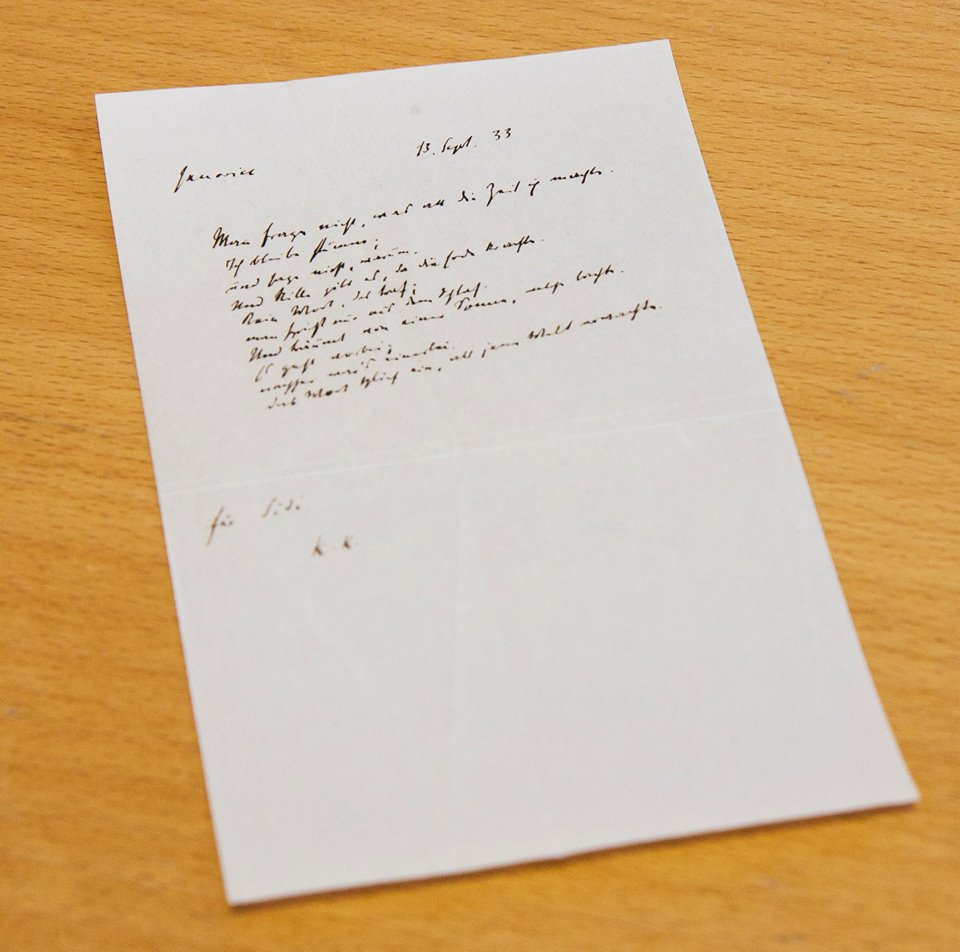 Janowice
13. Sept. 33
Man frage nicht, was all die Zeit ich machte.
Ich bleibe stumm;
und sage nicht, warum.
Und Stille gibt es, da die Erde krachte.
Kein Wort, das traf;
man spricht nur aus dem Schlaf.
Und träumt von einer Sonne, welche lachte.
Es geht vorbei;
nachher war's einerlei.
Das Wort schlief ein, als jene Welt erwachte.
Für Sidi
K. K.